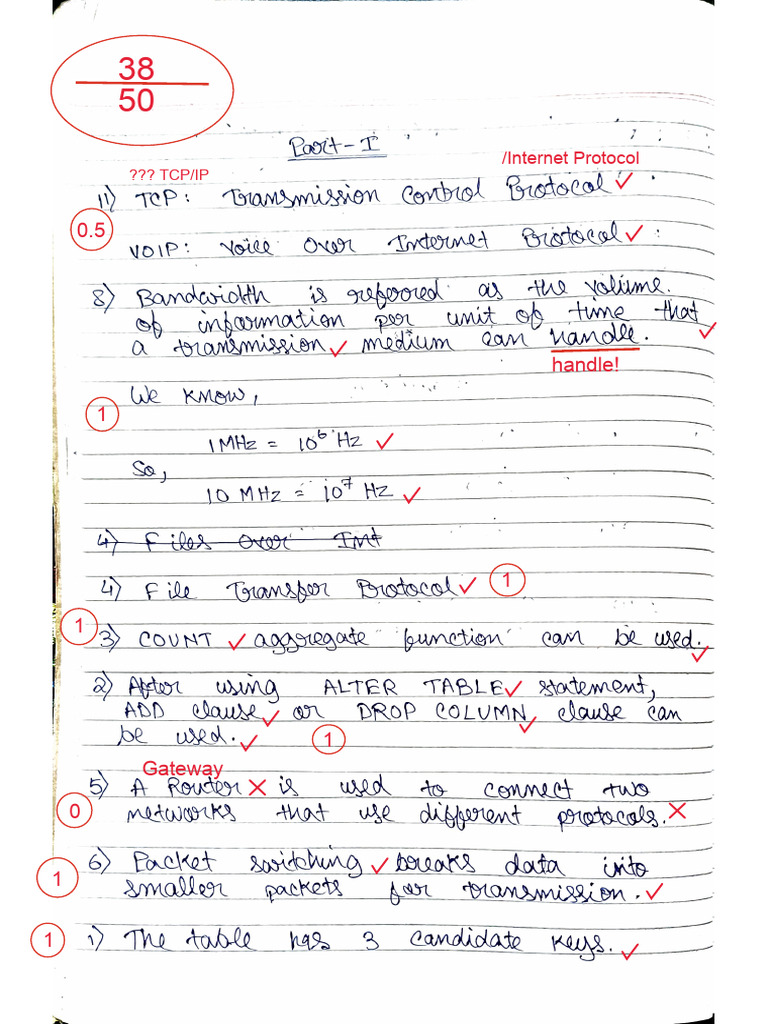 38
50
Part-I
/Internet Protocol
??? TCP/IP
11) TCP: Transmission Control Protocol
0.5
VOIP: Voice Over Internet Protocol
8) Bandwidth is referred as the volume
of information per unit of time that
a transmission medium can handle.
handle!
We know,
1
1 MHz = 10⁶ Hz
So,
10 MHz = 10⁷ Hz
4) Files Over Int
4) File Transfer Protocol 1
1
3) COUNT aggregate function can be used.
2) After using ALTER TABLE statement,
ADD clause or DROP COLUMN clause can
be used. 1
Gateway
5) A Router is used to connect two
0 networks that use different protocols.
6) Packet switching breaks data into
1 smaller packets for transmission.
1 1) The table has 3 candidate keys.